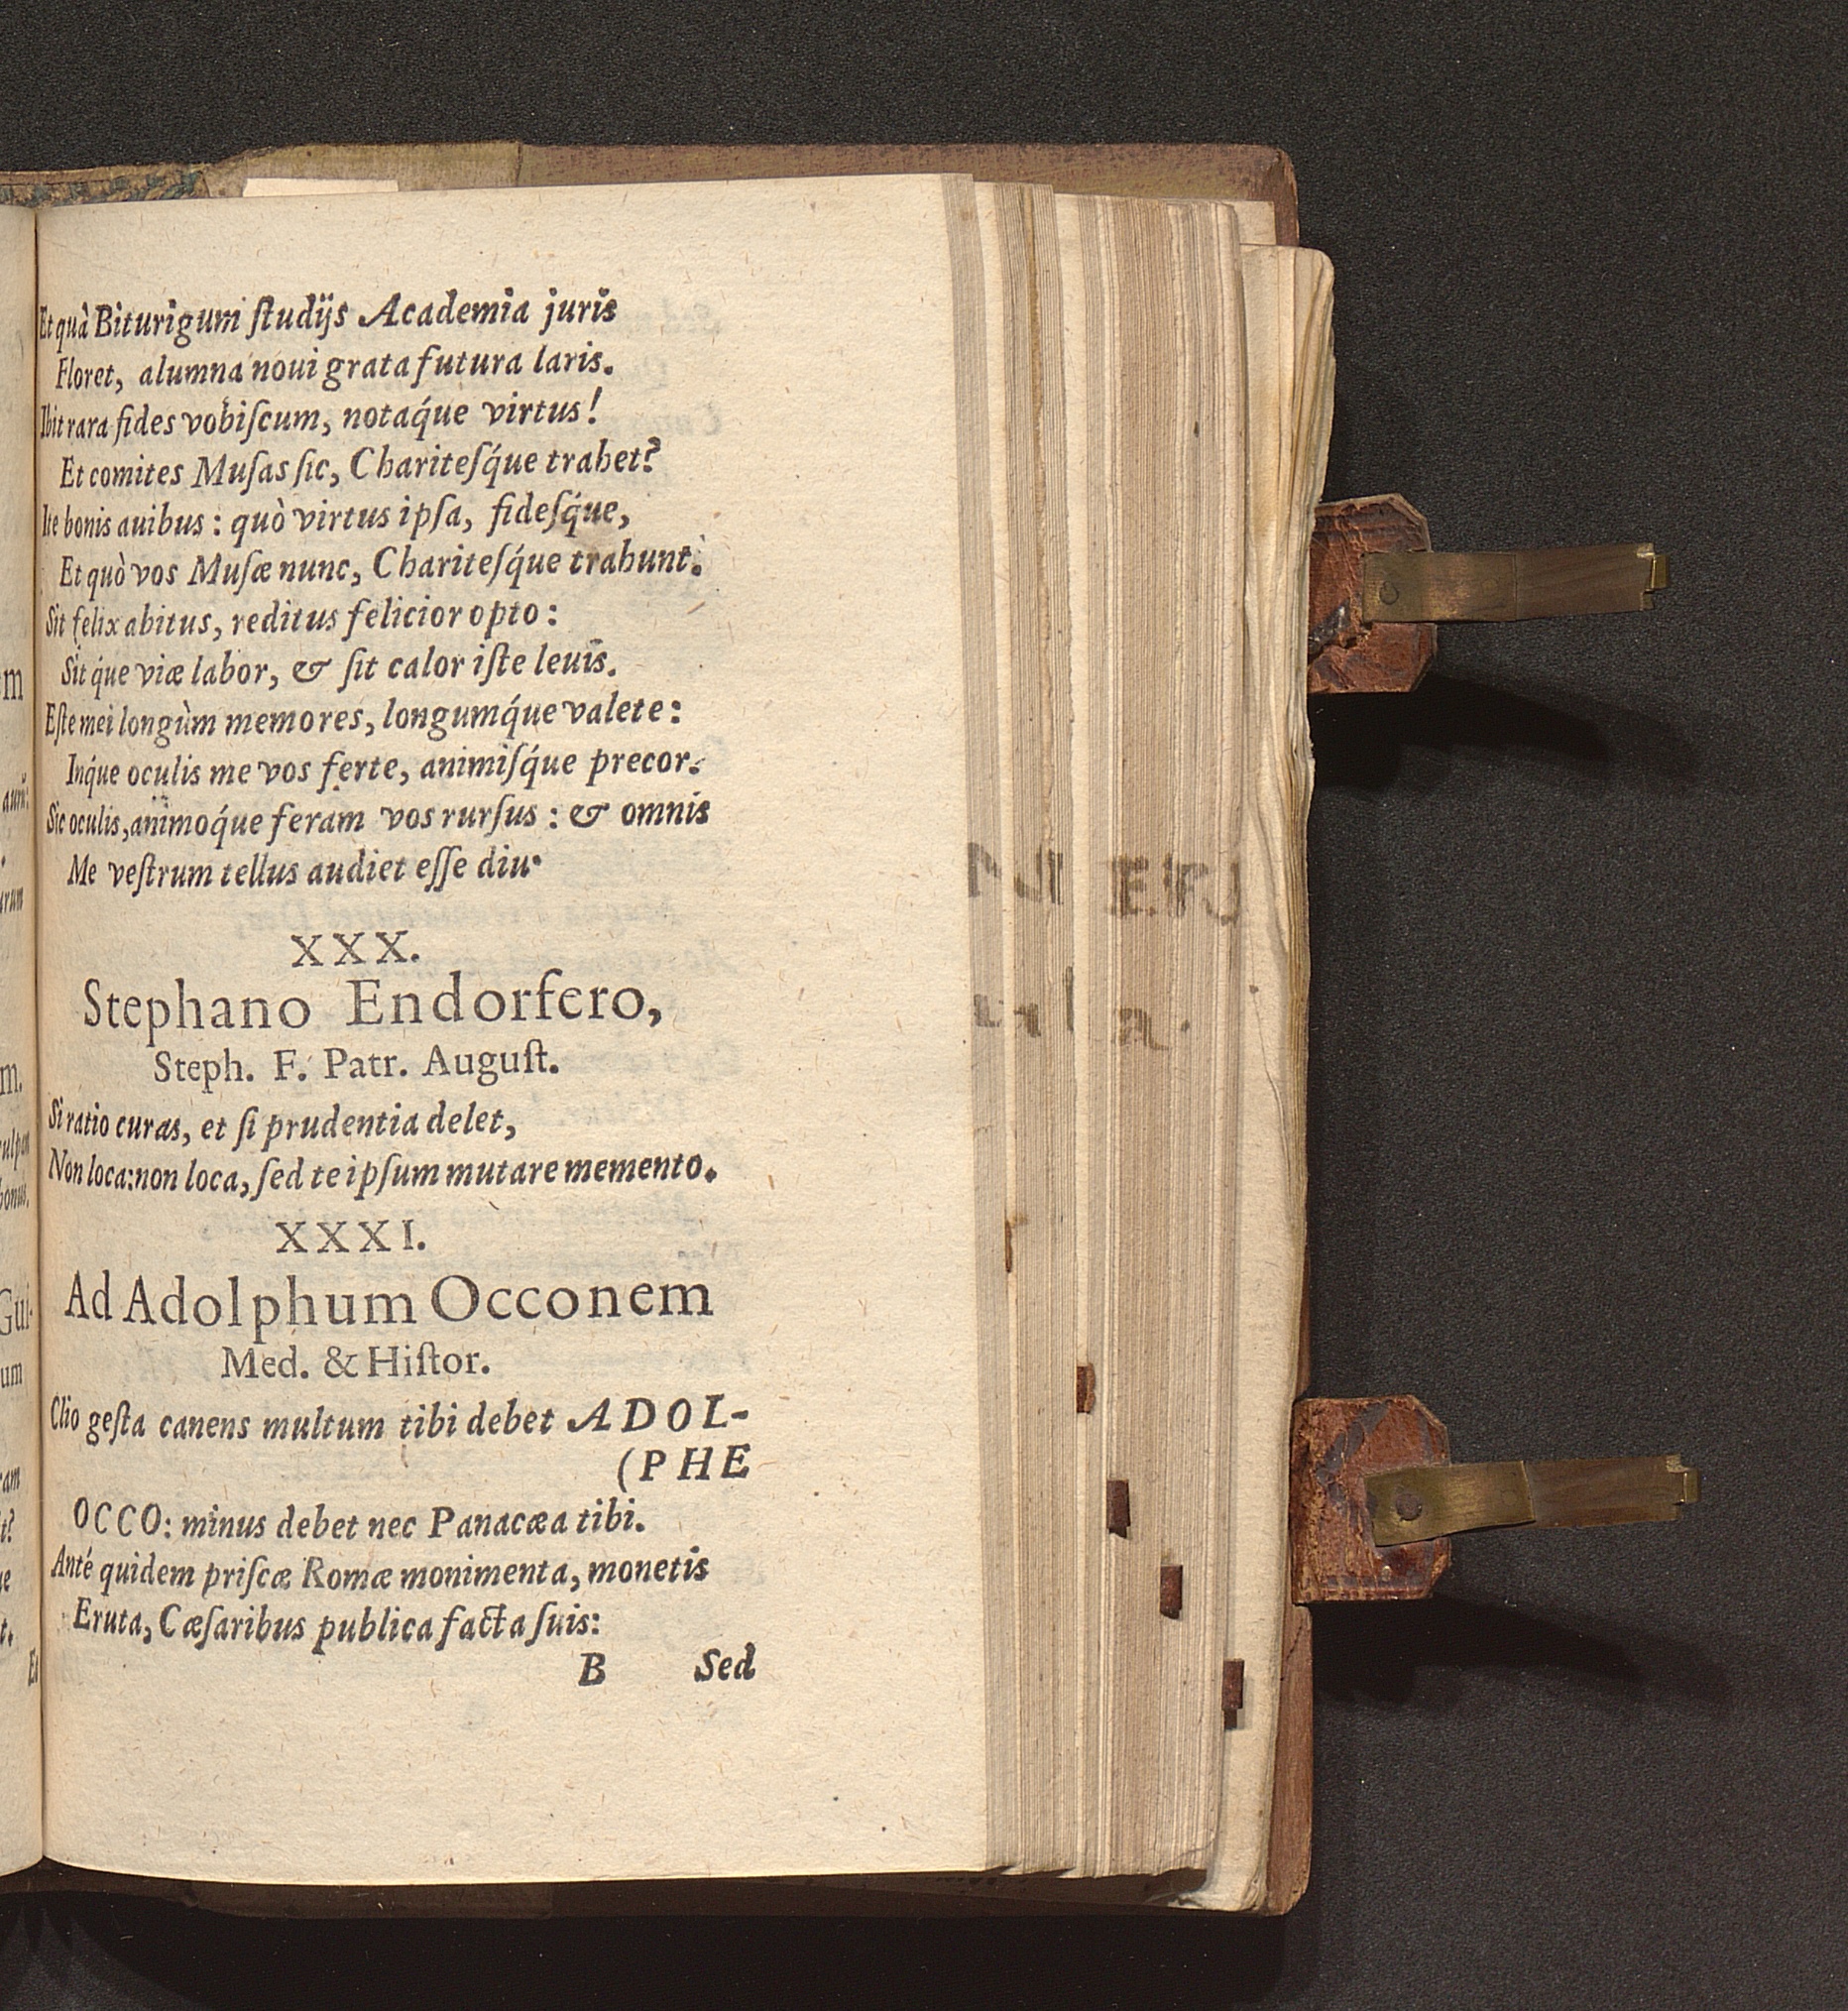 Et quà Biturigum ſtudijs Academia juris
Floret, alumna noui grata futura laris.
Ibit rara fides vobiſcum, notaq́ue virtus!
Et comites Muſas ſic, Chariteſq́ue trahet?
Ite bonis auibus: quò virtus ipſa, fideſq́ue,
Et quò vos Muſæ nunc, Chariteſq́ue trahunt.
Sit felix abitus, reditus felicior opto:
Sit q́ue viæ labor, & ſit calor iſte leuis.
Eſte mei longùm memores, longumq́ue valete:
Inq́ue oculis me vos ferte, animiſq́ue precor.
Sic oculis, animoq́ue feram vos rurſus: & omnis
Me veſtrum tellus audiet eſſe diu.
XXX.
Stephano Endorfero,
Steph. F. Patr. Auguſt.
Si ratio curas, et ſi prudentia delet,
Non loca: non loca, ſed te ipſum mutare memento.
XXXI.
Ad Adolphum Occonem
Med. & Hiſtor.
Clio geſta canens multum tibi debet ADOL-
(PHE
OCCO: minus debet nec Panacæa tibi.
Anté quidem priſcæ Romæ monimenta, monetis
Eruta, Cæſaribus publica facta ſuis:
B Sed